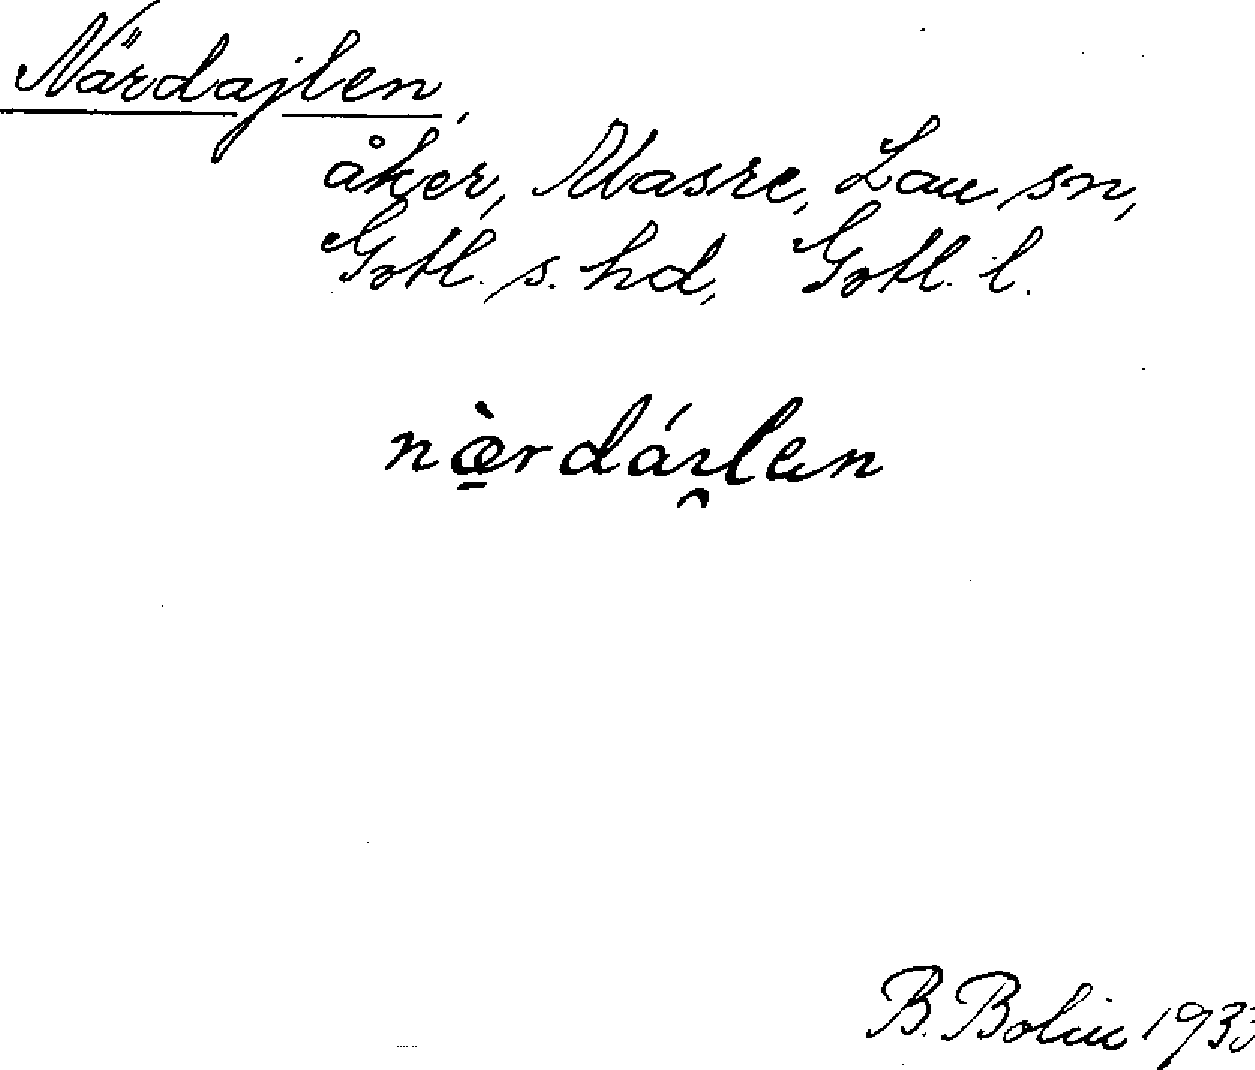 Närdajlen,
åker, Masre, Lau sn,
Gotl. s. hd, Gotl. l.
næ̱̀rdáɪ̯len
B. Bolin 1933